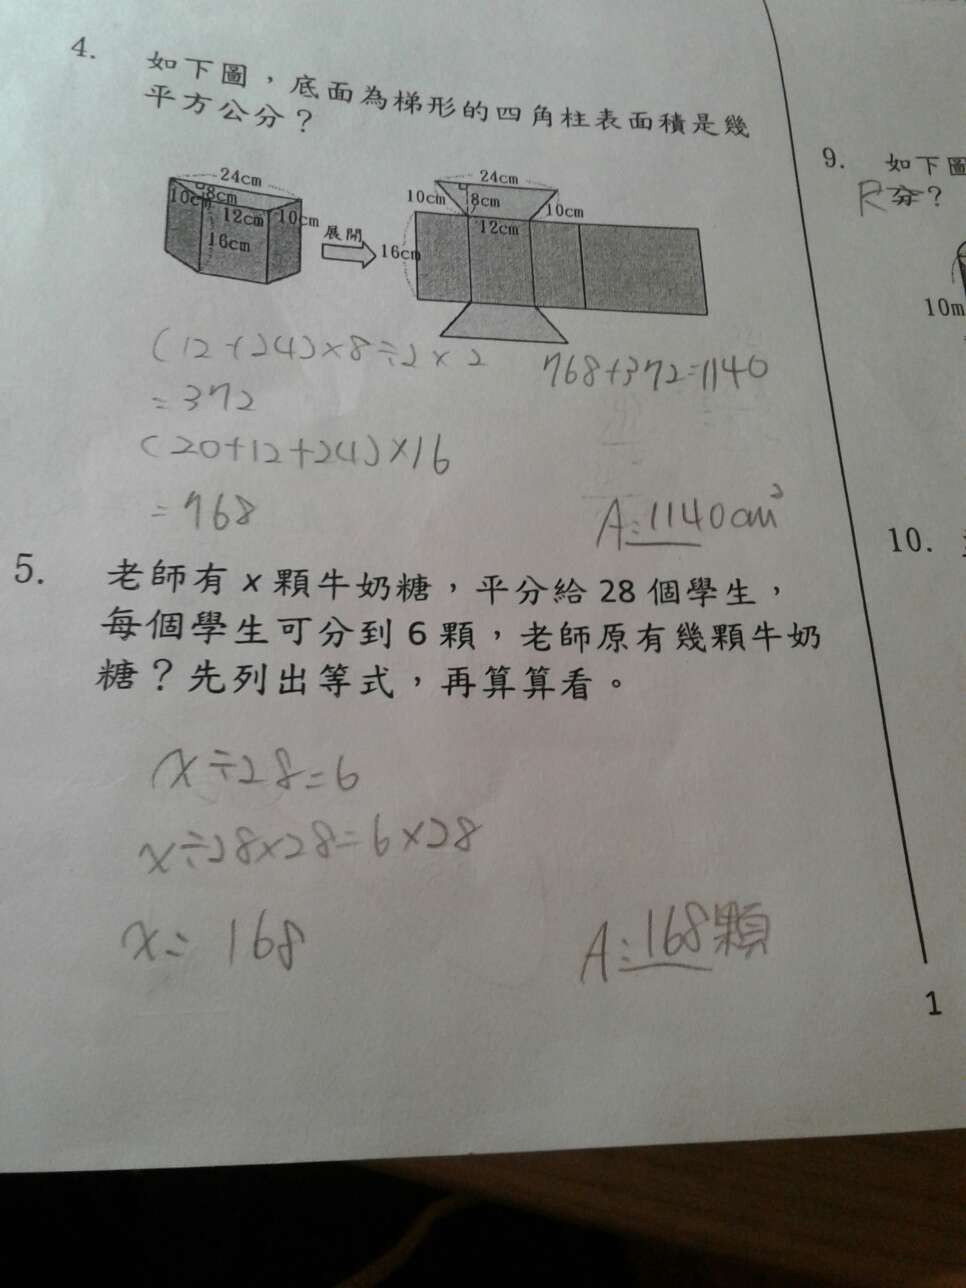 4. 如下圖，底面為梯形的四角柱表面積是幾
平方公分？
24cm
10cm
8cm
12cm
10cm
16cm
展開
24cm
10cm
8cm
10cm
12cm
16cm
(12+24)×8÷2×2
=372
(20+12+24)×16
=768
768+372=1140
A:1140cm²
5. 老師有 x 顆牛奶糖，平分給 28 個學生，
每個學生可分到 6 顆，老師原有幾顆牛奶
糖？先列出等式，再算算看。
x÷28=6
x÷28×28=6×28
x=168
A:168顆
9. 如下圖
分？
10m
10.
1